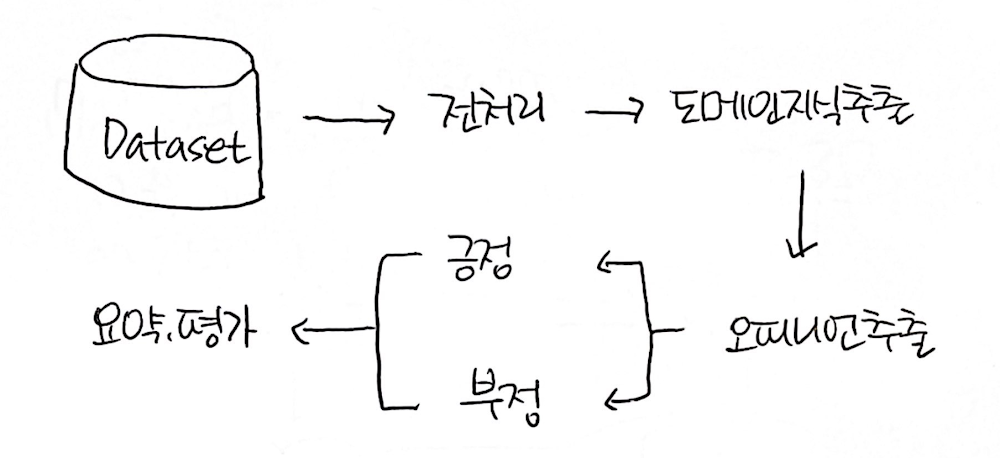 Dataset
전처리
도메인지식추출
오피니언추출
긍정
부정
요약.평가